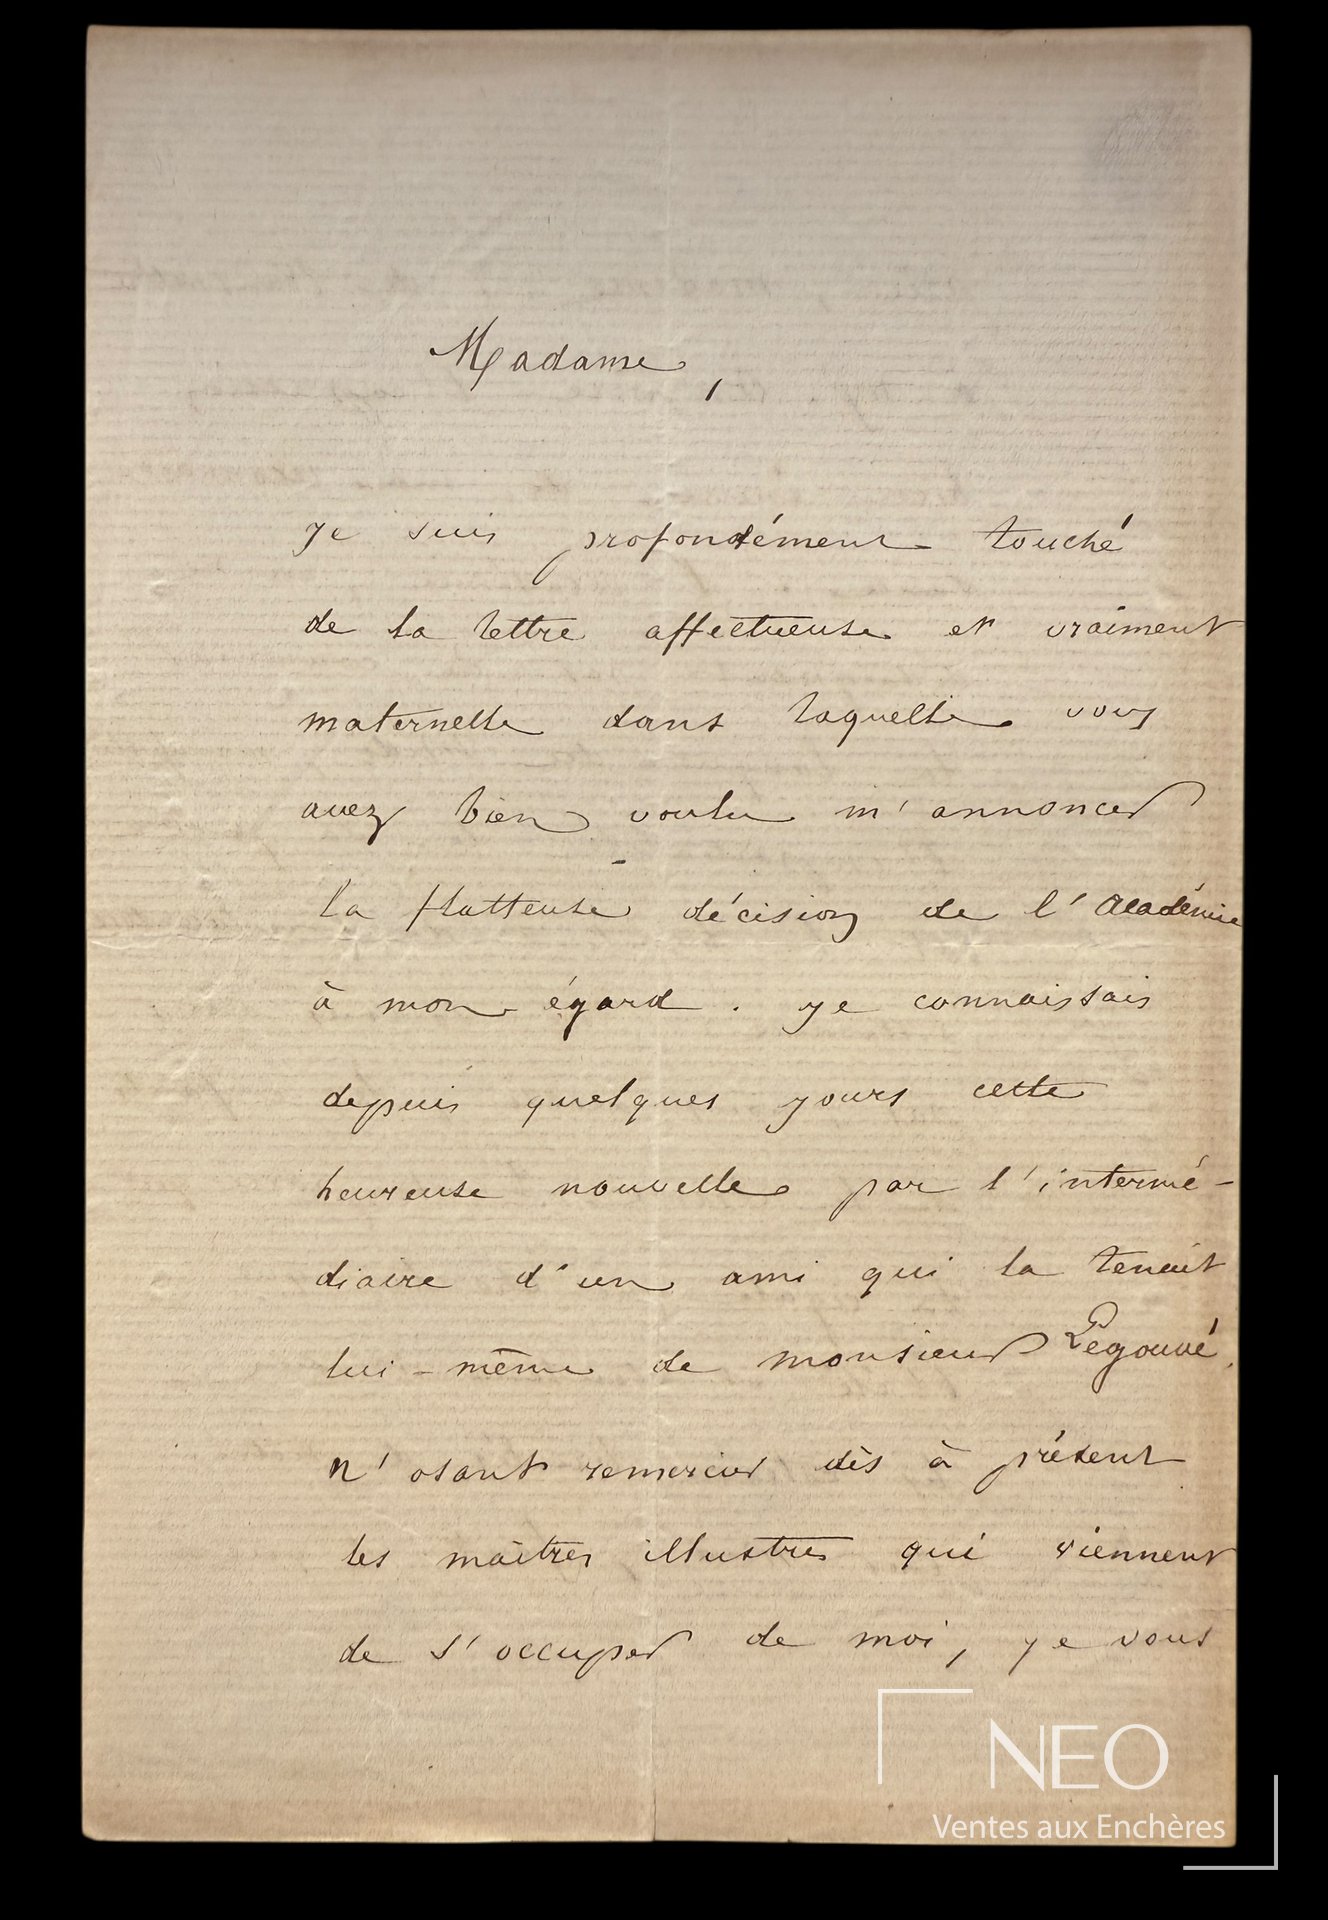 Madame,
Je suis profondément touché
de la lettre affectueuse et vraiment
maternelle dans laquelle vous
avez bien voulu m'annoncer
la flatteuse décision de l'Académie
à mon égard. Je connaissais
depuis quelques jours cette
heureuse nouvelle par l'intermé-
diaire d'un ami qui la tenait
lui-même de monsieur Legouvé.
N'osant remercier dès à présent
les maîtres illustres qui viennent
de s'occuper de moi, je vous
NEO
Ventes aux Enchères